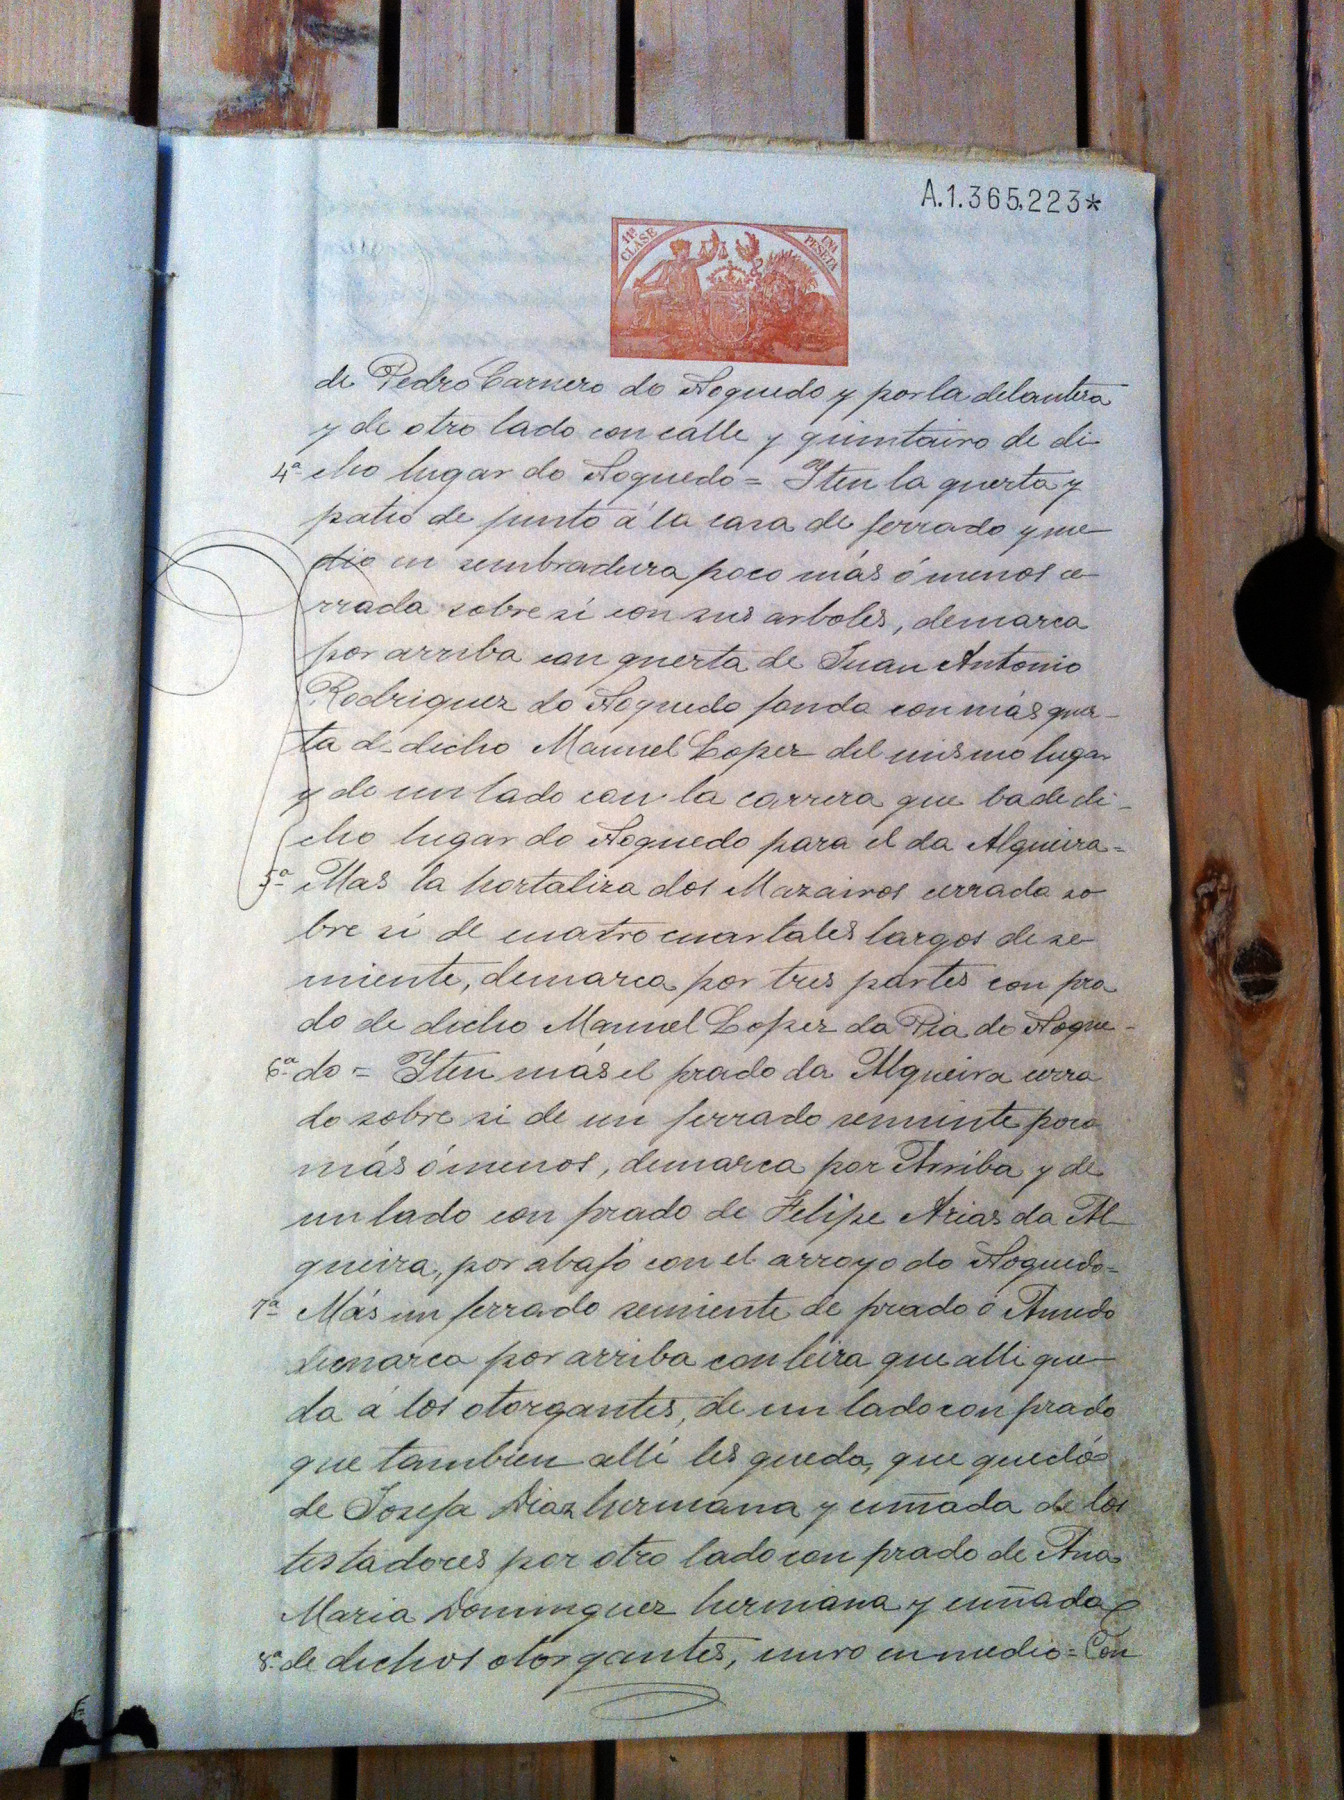 A.1.365.223*
11ª CLASE
UNA PESETA
de Pedro Carnero do Noguedo y por la delantera
y de otro lado con calle y quintairo de di-
4ª cho lugar do Noguedo = Yten la querta y
patio de junto á la casa de ferrado y me-
dio en sembradura poco más ó menos ce-
rrada sobre si con sus arboles, demarca
por arriba con querta de Juan Antonio
Rodriguez do Noguedo fondo con más quer-
ta de dicho Manuel Lopez del mismo lugar
y de un lado con la carrera que ba de di-
cho lugar do Noguedo para el da Algueira =
5ª Mas la hortaliza dos Mazairos cerrada so-
bre si de cuatro cuartales largos de se-
miente, demarca por tres partes con pra
do de dicho Manuel Lopez da Pia do Nogue-
6ª do = Yten más el prado da Algueira cerra
do sobre si de un ferrado semiente poco
más ó menos, demarca por Arriba y de
un lado con prado de Felipe Arias da Al-
gueira, por abajo con el arroyo do Noguedo =
7ª Más un ferrado semiente de prado ó Amedo
demarca por arriba con leira que alli que-
da á los otorgantes, de un lado con prado
que tambien allí les queda, que quedó
de Josefa Diaz hermana y cuñada de los
testadores por otro lado con prado de Ana
Maria Dominguez hermana y cuñada
8ª de dichos otorgantes, muro en medio = Con